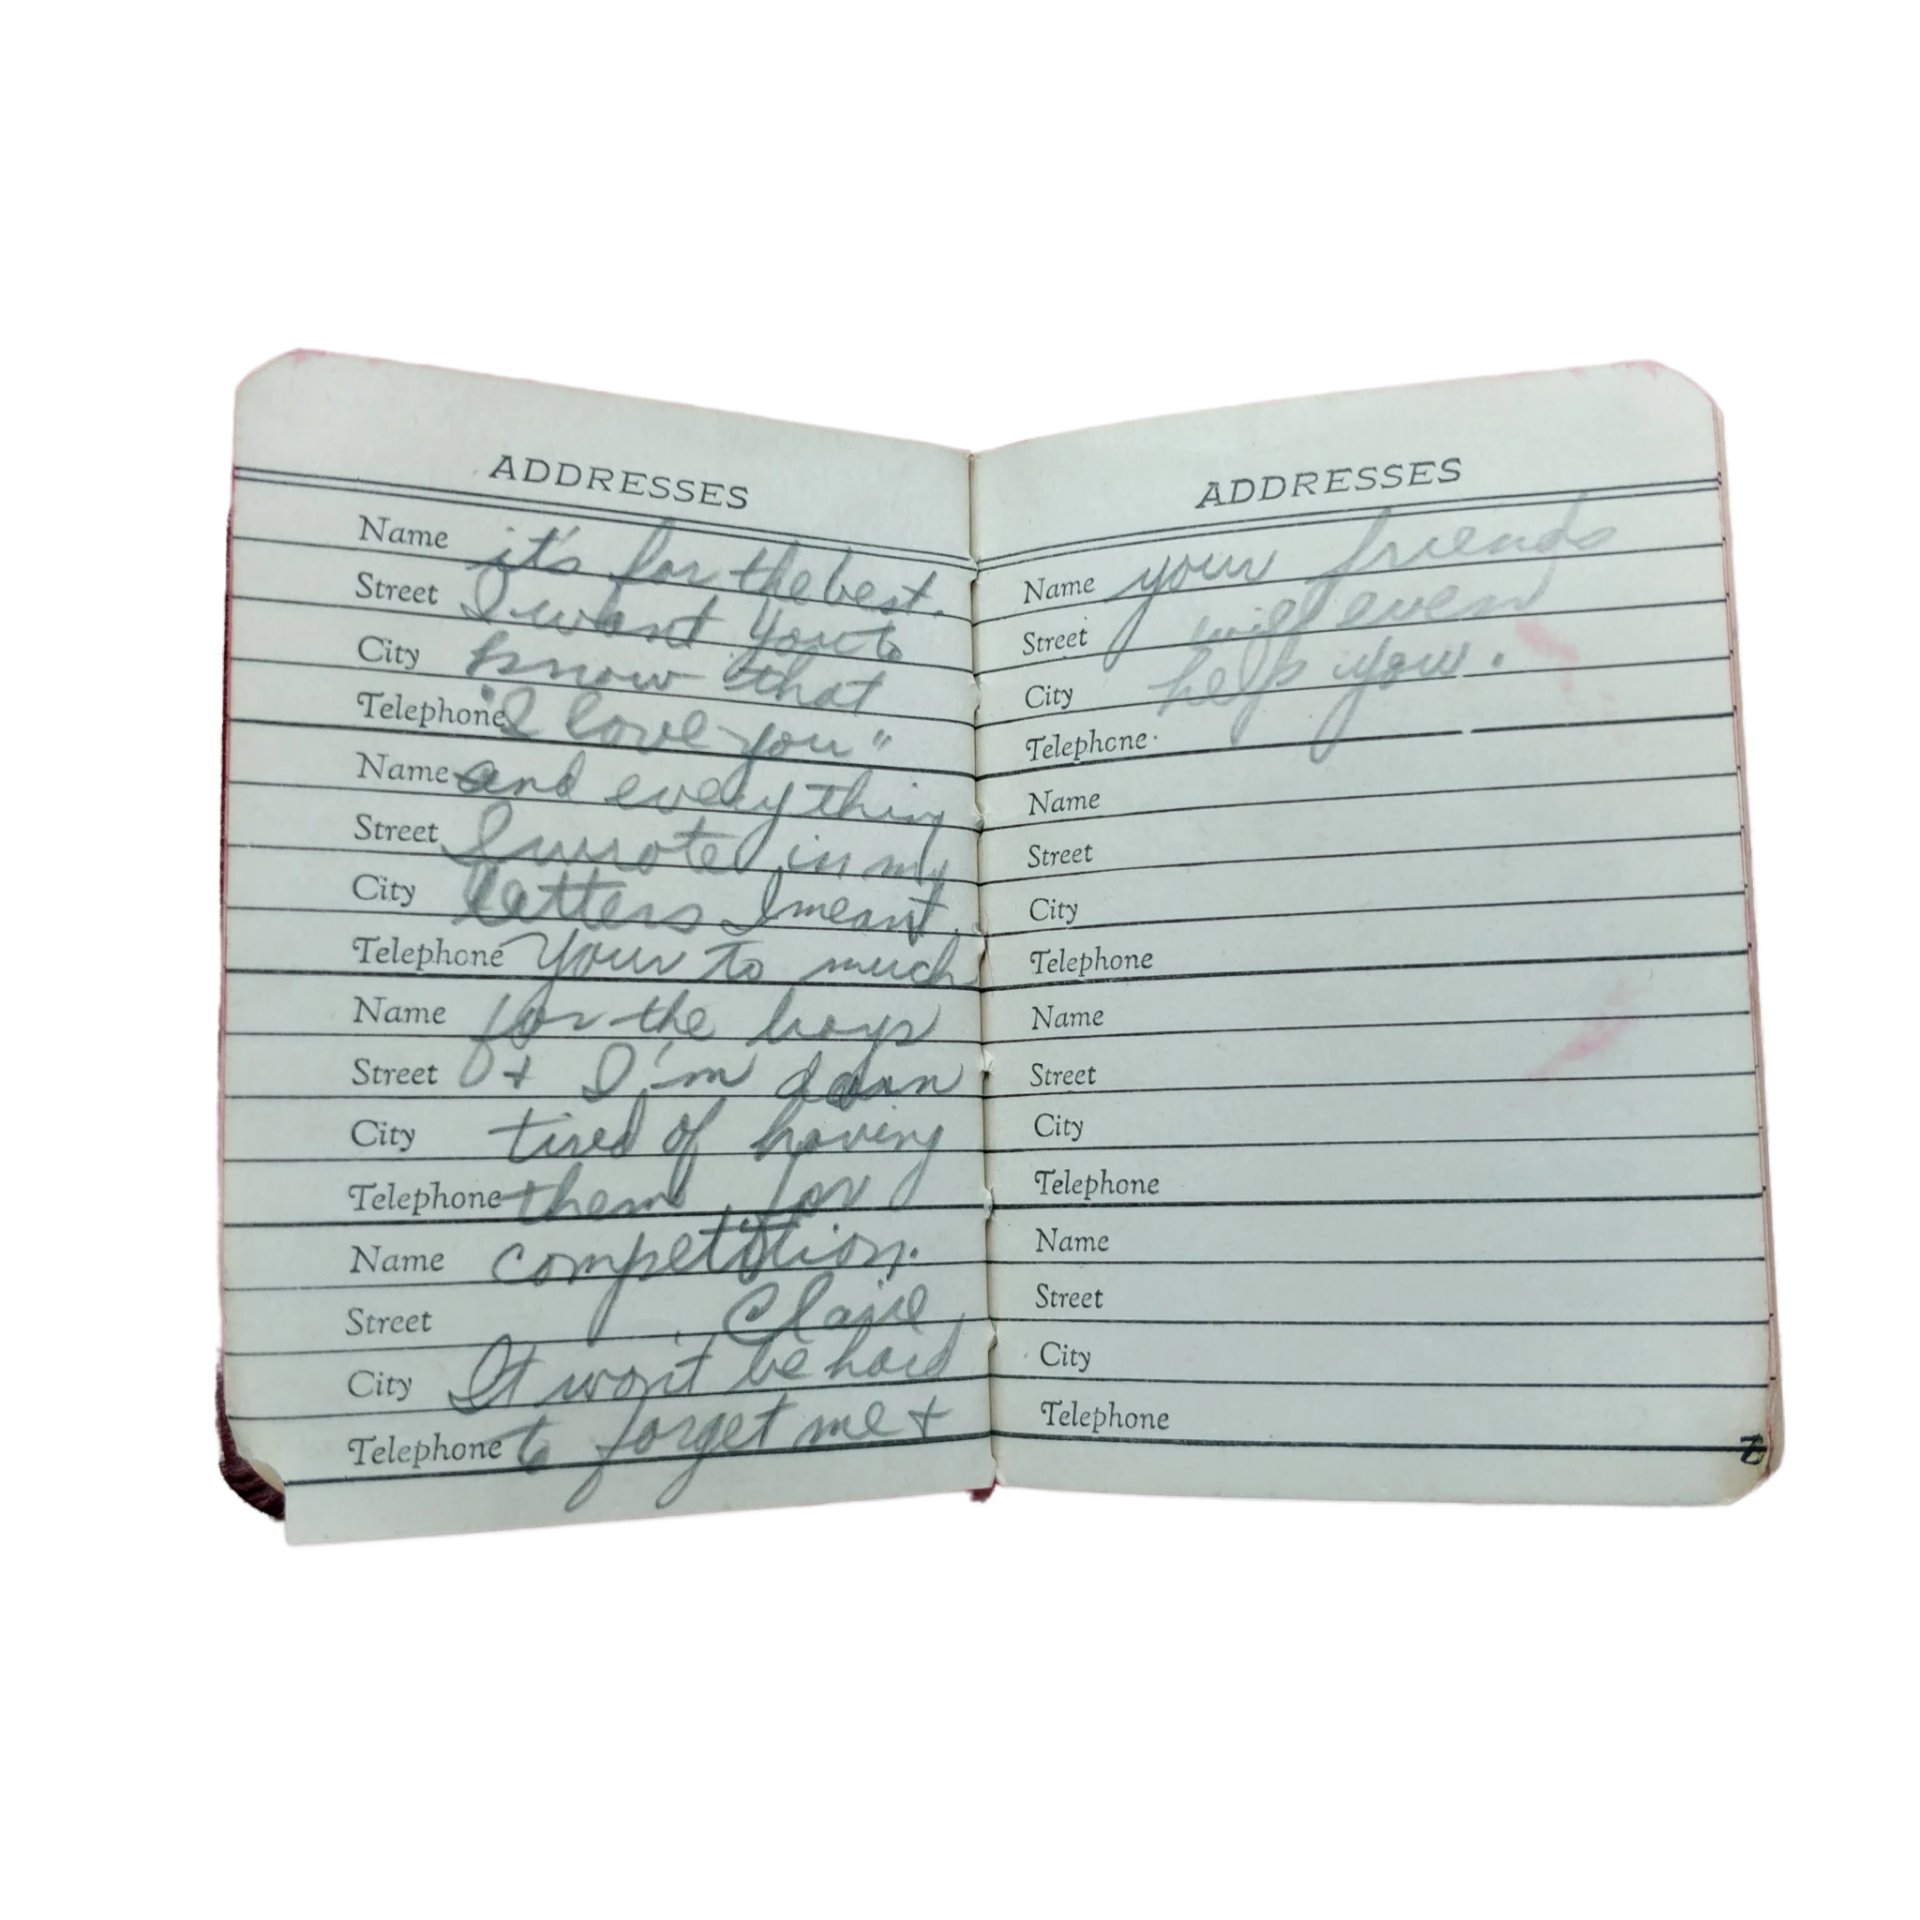 ADDRESSES
Name it's for the best.
Street I want you to
City know that
Telephone "I love you"
Name and everything
Street I wrote in my
City letters I meant.
Telephone Your to much
Name for the boys
Street + I'm darn
City tired of having
Telephone them for
Name competition.
Street Claire
City It won't be hard
Telephone to forget me +
ADDRESSES
Name your friends
Street will even
City help you.
Telephone
Name
Street
City
Telephone
Name
Street
City
Telephone
Name
Street
City
Telephone
Z